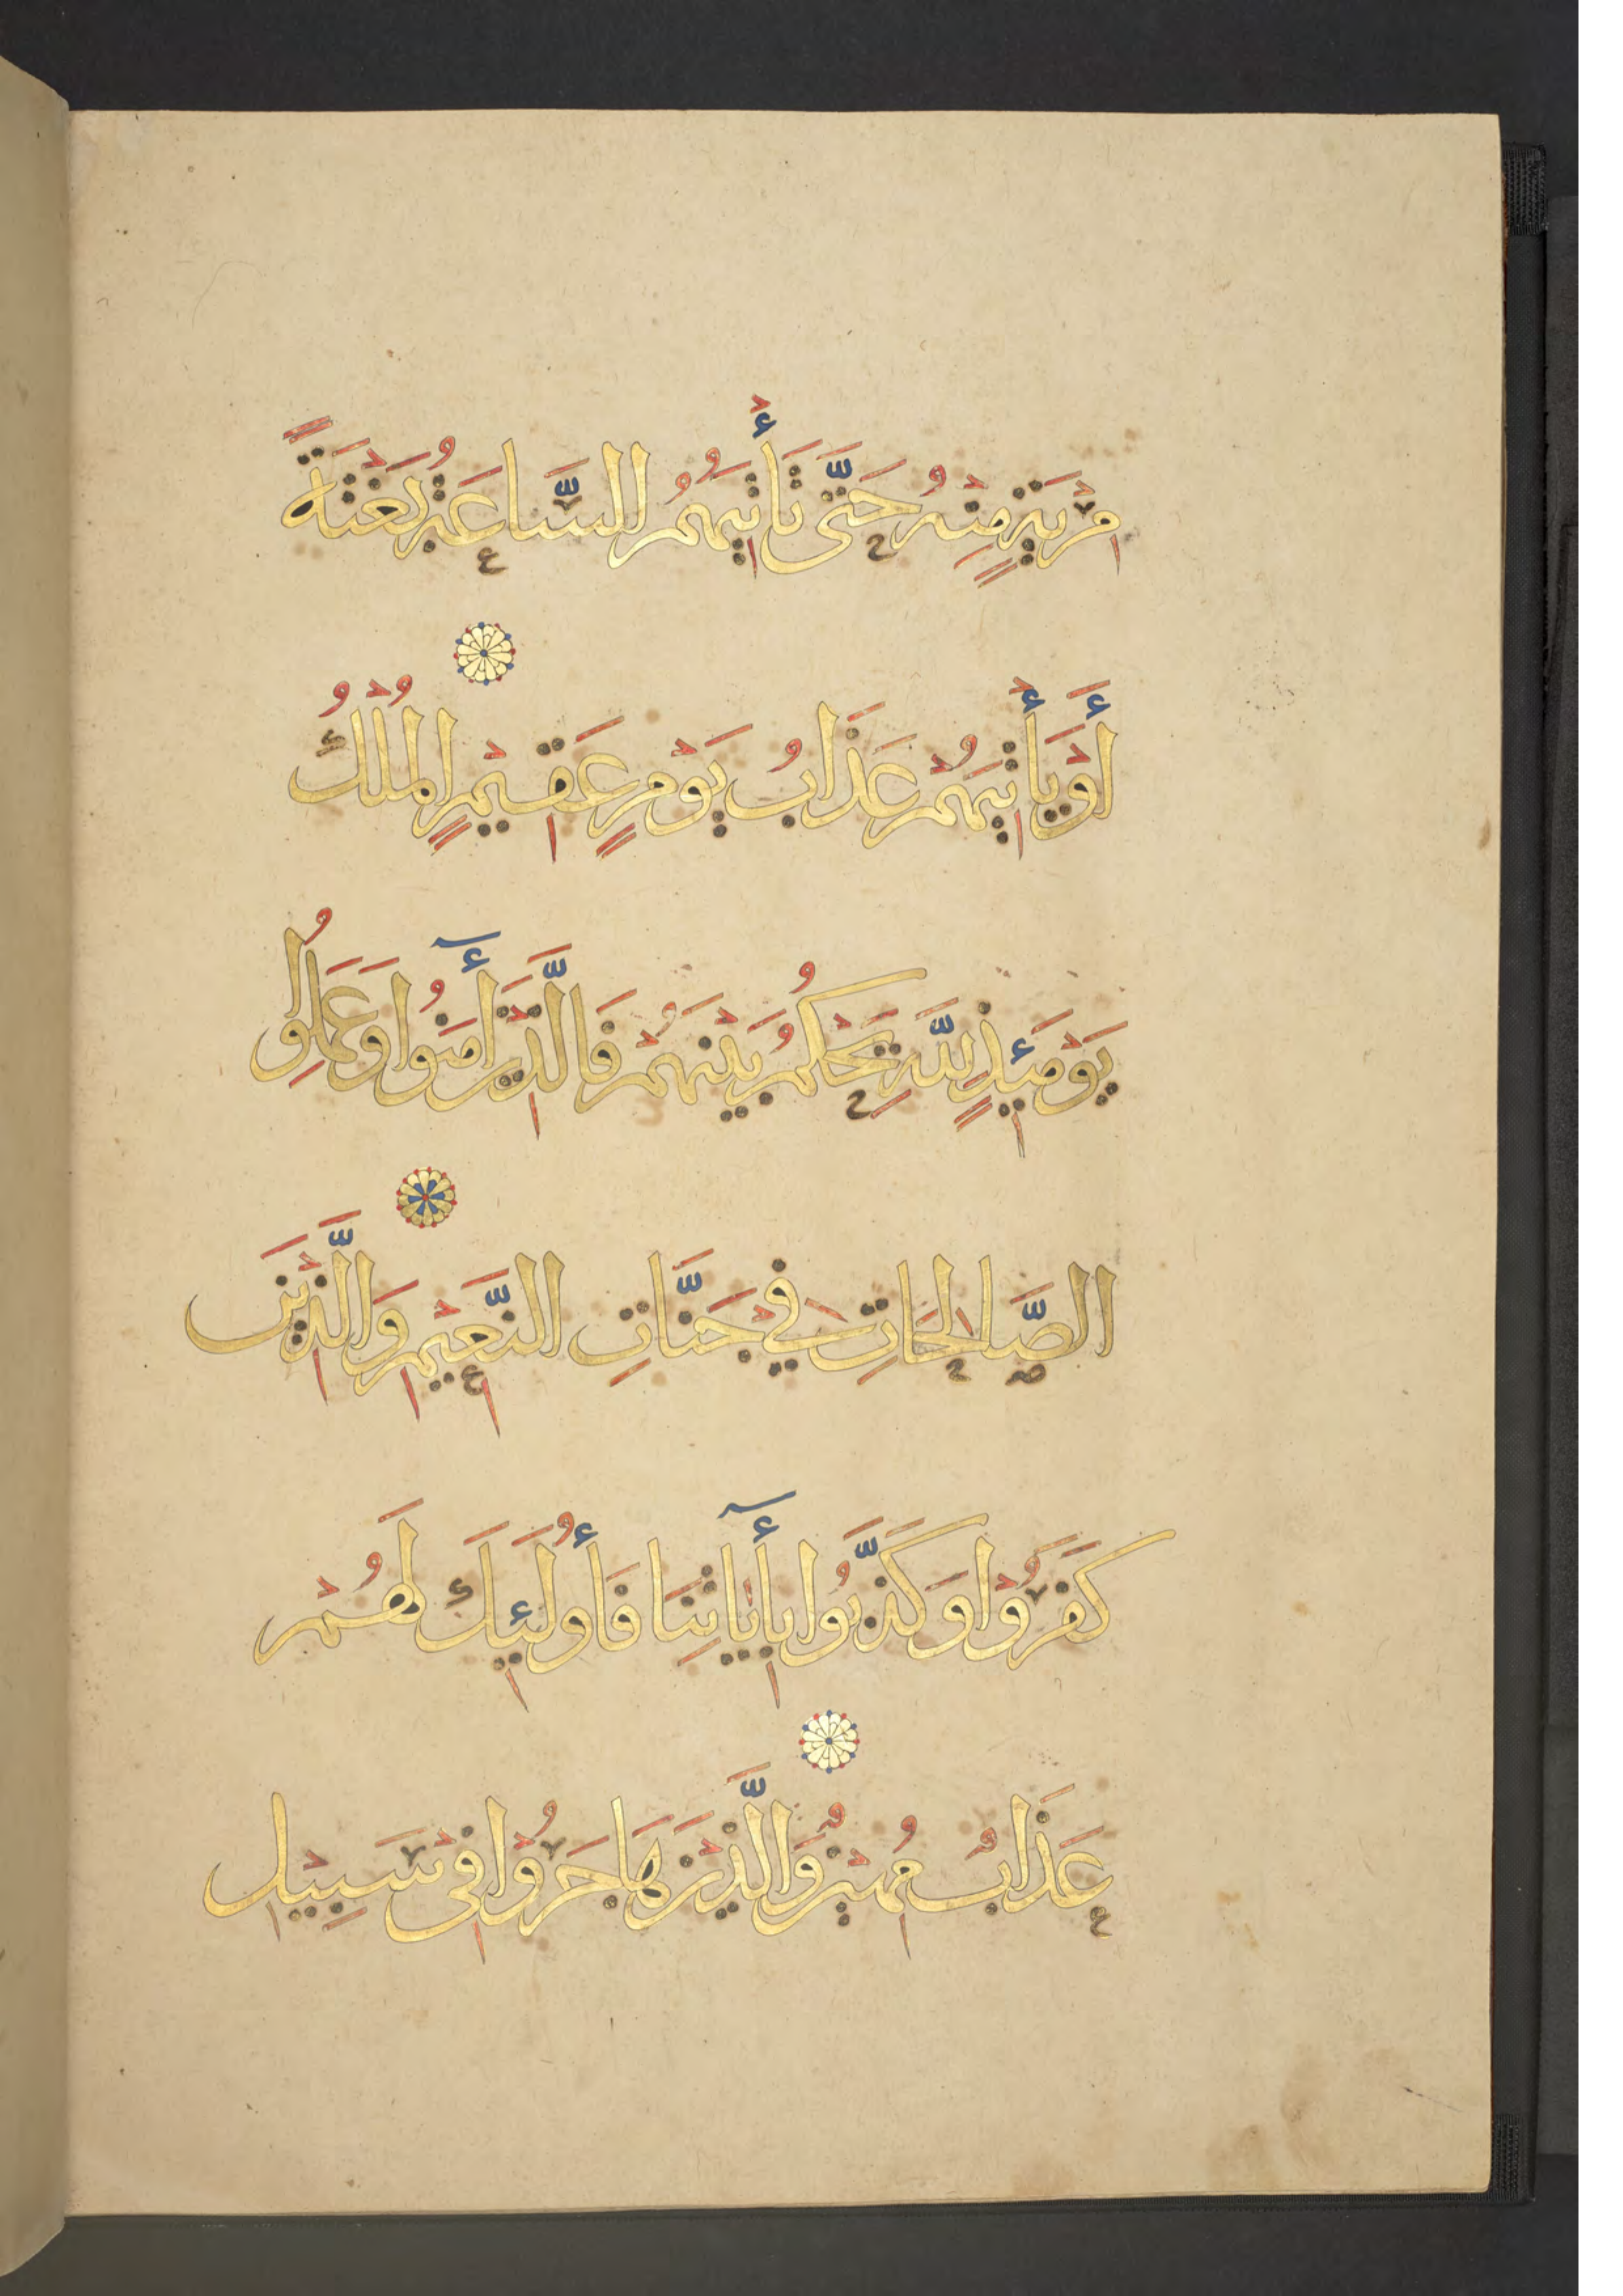 مِرْيَةٍ مِنْهُ حَتَّى تَأْتِيَهُمُ السَّاعَةُ بَغْتَةً
أَوْ يَأْتِيَهُمْ عَذَابُ يَوْمٍ عَقِيمٍ الْمُلْكُ
يَوْمَئِذٍ لِلَّهِ يَحْكُمُ بَيْنَهُمْ فَالَّذِينَ آمَنُوا وَعَمِلُوا
الصَّالِحَاتِ فِي جَنَّاتِ النَّعِيمِ وَالَّذِينَ
كَفَرُوا وَكَذَّبُوا بِآيَاتِنَا فَأُولَئِكَ لَهُمْ
عَذَابٌ مُهِينٌ وَالَّذِينَ هَاجَرُوا فِي سَبِيلِ